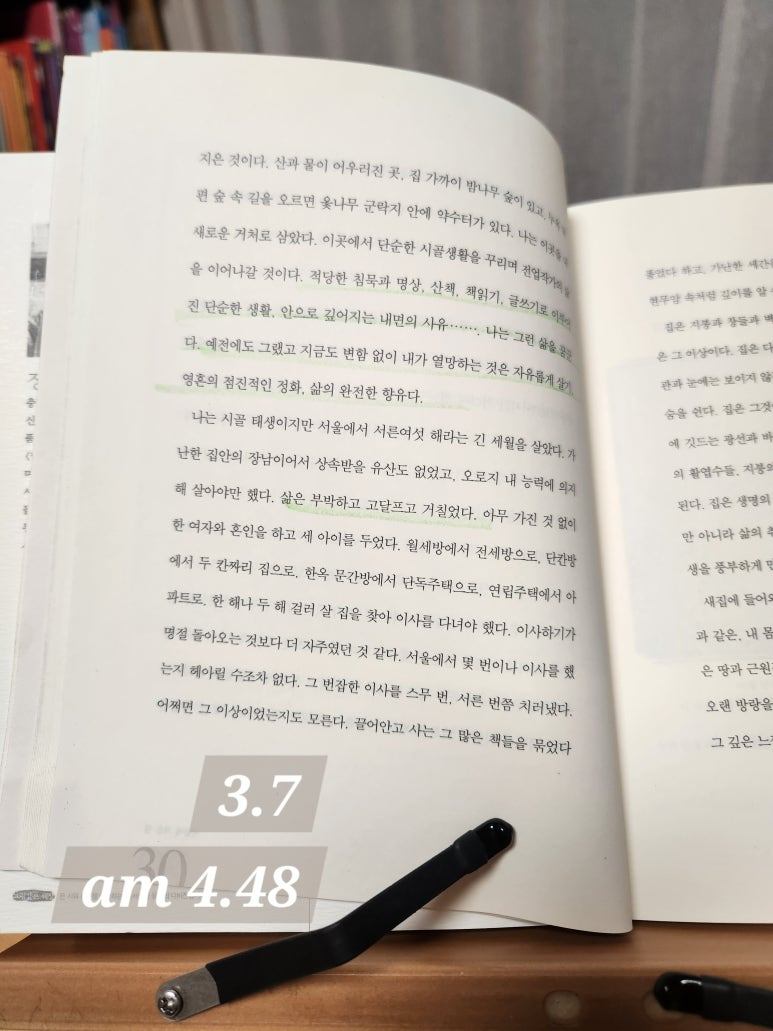 지은 것이다. 산과 물이 어우러진 곳, 집 가까이 밤나무 숲이 있고,
편 숲 속 길을 오르면 옻나무 군락지 안에 약수터가 있다. 나는 이곳을
새로운 거처로 삼았다. 이곳에서 단순한 시골생활을 꾸리며 전업작가의
을 이어나갈 것이다. 적당한 침묵과 명상, 산책, 책읽기, 글쓰기로
진 단순한 생활, 안으로 깊어지는 내면의 사유……. 나는 그런 삶을
다. 예전에도 그랬고 지금도 변함 없이 내가 열망하는 것은 자유롭게 살기,
영혼의 점진적인 정화, 삶의 완전한 향유다.
나는 시골 태생이지만 서울에서 서른여섯 해라는 긴 세월을 살았다. 가
난한 집안의 장남이어서 상속받을 유산도 없었고, 오로지 내 능력에 의지
해 살아야만 했다. 삶은 부박하고 고달프고 거칠었다. 아무 가진 것 없이
한 여자와 혼인을 하고 세 아이를 두었다. 월세방에서 전세방으로, 단칸방
에서 두 칸짜리 집으로, 한옥 문간방에서 단독주택으로, 연립주택에서 아
파트로. 한 해나 두 해 걸러 살 집을 찾아 이사를 다녀야 했다. 이사하기가
명절 돌아오는 것보다 더 자주였던 것 같다. 서울에서 몇 번이나 이사를 했
는지 헤아릴 수조차 없다. 그 번잡한 이사를 스무 번, 서른 번쯤 치러냈다.
어쩌면 그 이상이었는지도 모른다. 끌어안고 사는 그 많은 책들을 묶었다
30
3.7
am 4.48
품었다 하고, 가난한 세간
현무암 속처럼 깊이를 알
집은 지붕과 창들과 벽
은 그 이상이다. 집은 다
관과 눈에는 보이지 않
숨을 쉰다. 집은 그것
에 깃드는 광선과 바
의 활엽수들, 지붕의
된다. 집은 생명의
만 아니라 삶의 추
생을 풍부하게 만
새집에 들어와
과 같은, 내 몸
은 땅과 근원
오랜 방랑을
그 깊은 느